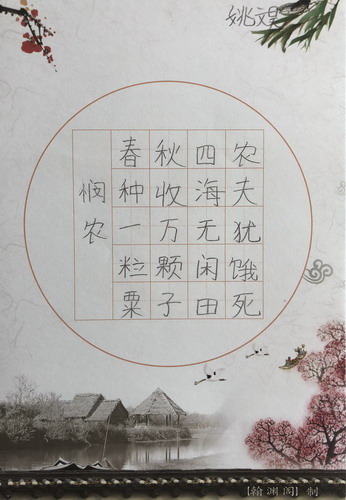 姚文昊
悯农
春种一粒粟
秋收万颗子
四海无闲田
农夫犹饿死
【翰渊阁】制